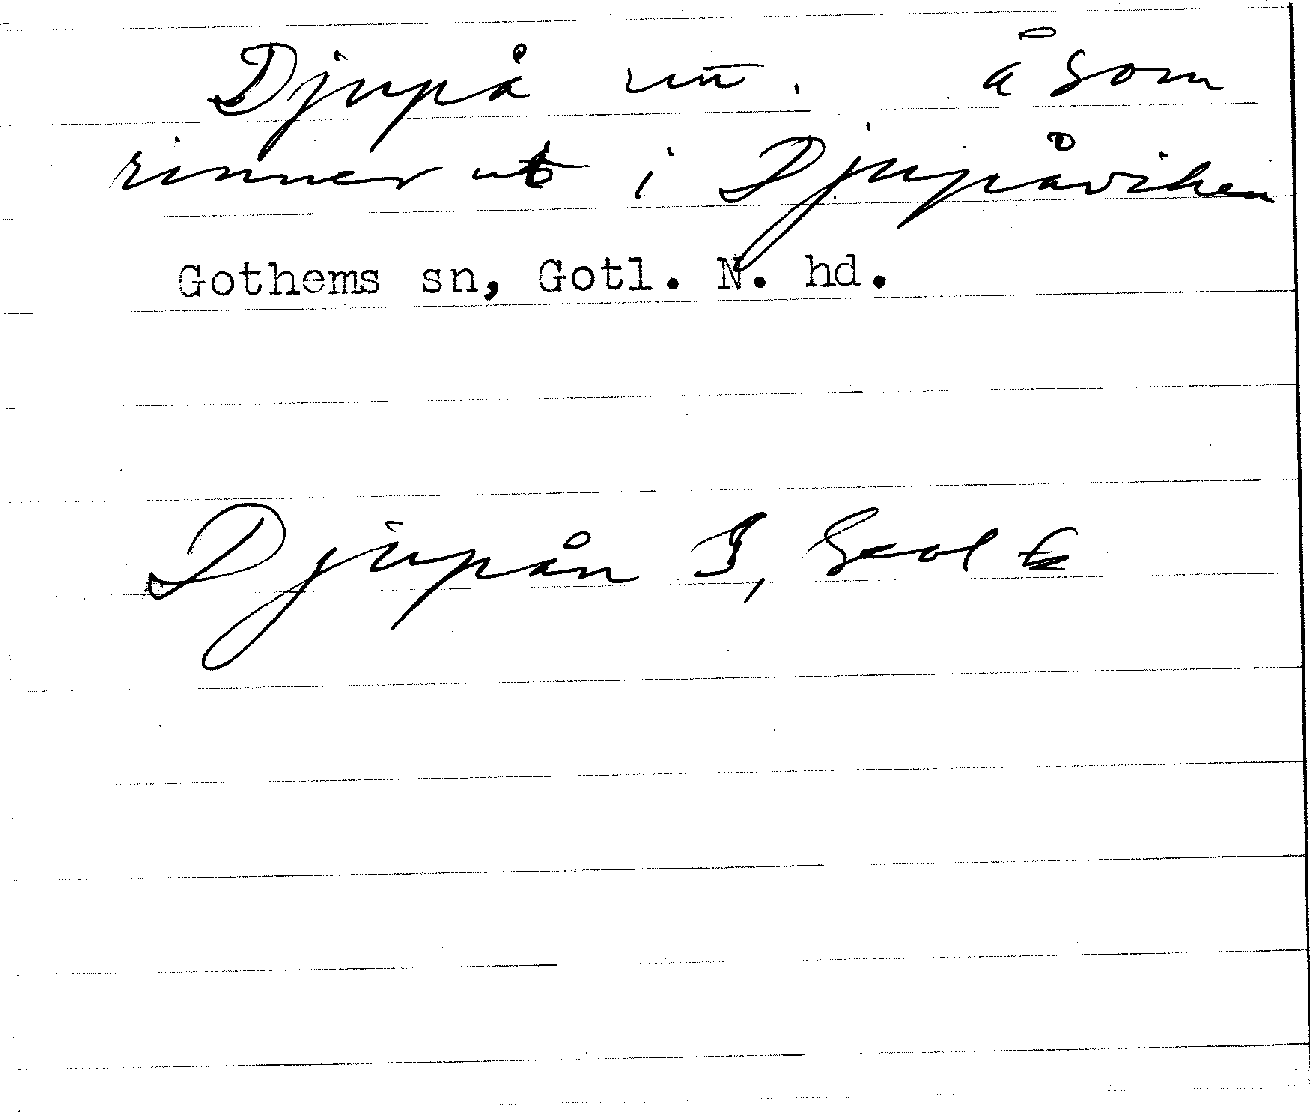 Djupå å som
rinner ut i Djupåviken
Gothems sn, Gotl. N. hd.
Djupån